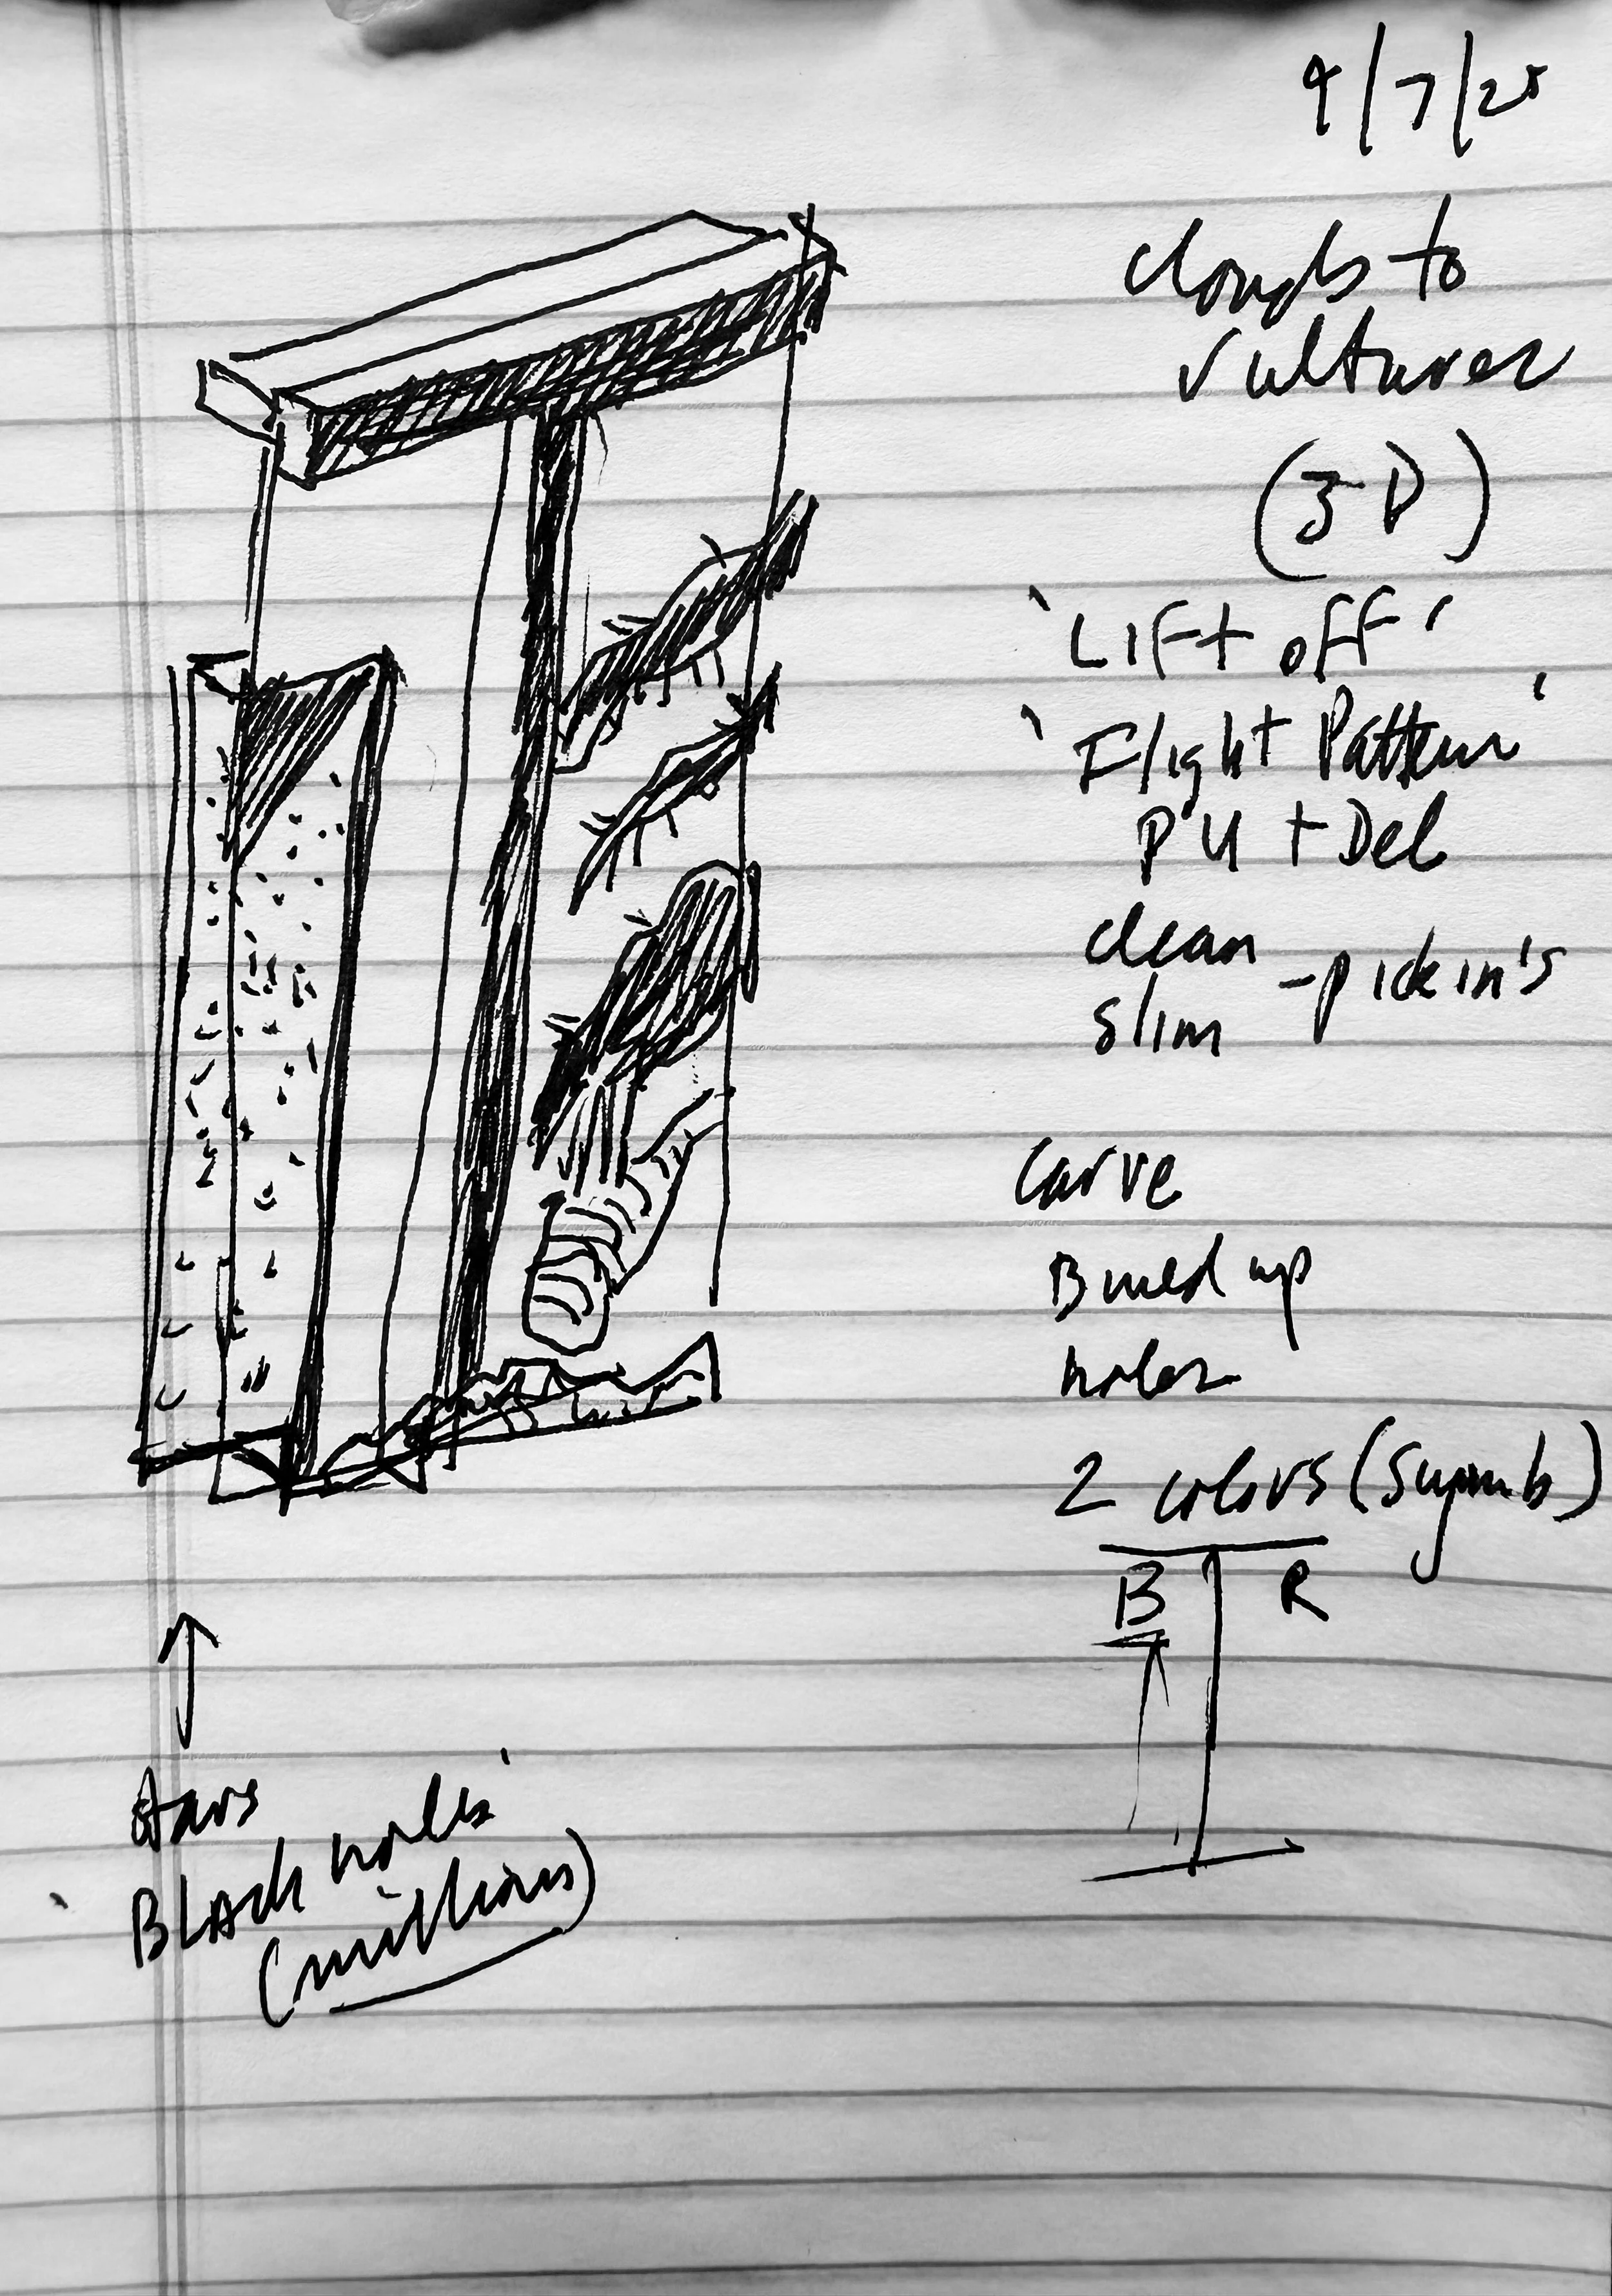 9/7/25
Clouds to
Vultures
(3D)
'Lift off'
'Flight Pattern'
PU + Del
clean
slim - pickin's
carve
Build up
holes
2 colors (Symb)
B R
stars
Black holes'
(millions)